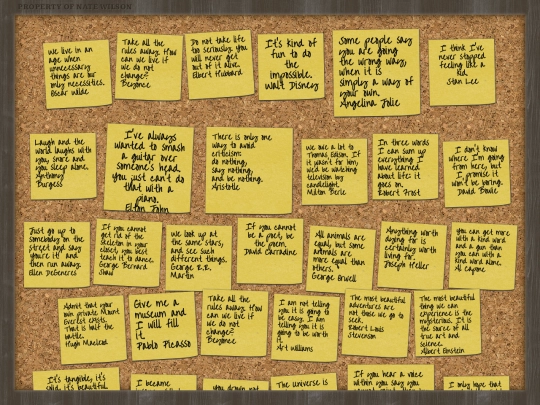 PROPERTY OF NATE WILSON
We live in an
age when
unnecessary
things are our
only necessities.
Oscar Wilde
Take all the
rules away. How
can we live if
we do not
change?
Beyonce
Do not take life
too seriously. You
will never get
out of it alive.
Elbert Hubbard
It's kind of
fun to do
the
impossible.
Walt Disney
Some people say
you are going
the wrong way,
when it is
simply a way of
your own.
Angelina Jolie
I think I've
never stopped
feeling like a
kid.
Stan Lee
Laugh and the
world laughs with
you, snore and
you sleep alone.
Anthony
Burgess
I've always
wanted to smash
a guitar over
someone's head.
You just can't do
that with a
piano.
Elton John
There is only one
way to avoid
criticism:
do nothing,
say nothing,
and be nothing.
Aristotle
We owe a lot to
Thomas Edison. If
it wasn't for him,
we'd be watching
television by
candlelight.
Milton Berle
In three words
I can sum up
everything I
have learned
about life: it
goes on.
Robert Frost
I don't know
where I'm going
from here, but
I promise it
won't be boring.
David Bowie
Just go up to
somebody on the
street and say
"You're it!" and
then run away.
Ellen DeGeneres
If you cannot
get rid of the
skeleton in your
closet, you best
teach it to dance.
George Bernard
Shaw
We look up at
the same stars,
and see such
different things.
George R.R.
Martin
If you cannot
be a poet, be
the poem.
David Carradine
All animals are
equal, but some
animals are
more equal than
others.
George Orwell
Anything worth
dying for is
certainly worth
living for.
Joseph Heller
You can get more
with a kind word
and a gun than
you can with a
kind word alone.
Al Capone
Admit that your
own private Mount
Everest exists.
That is half the
battle.
Hugh Macleod
Give me a
museum and
I will fill
it.
Pablo Picasso
Take all the
rules away. How
can we live if
we do not
change?
Beyonce
I am not telling
you it is going
to be easy. I am
telling you it is
going to be worth
it.
Art Williams
The most beautiful
adventures are
not those we go to
seek.
Robert Louis
Stevenson
The most beautiful
thing we can
experience is the
mysterious. It is
the source of all
true art and
science.
Albert Einstein
It's tangible, it's
solid, it's beautiful.
I became
you drown not
The universe is
If you hear a voice
within you say you
I only hope that